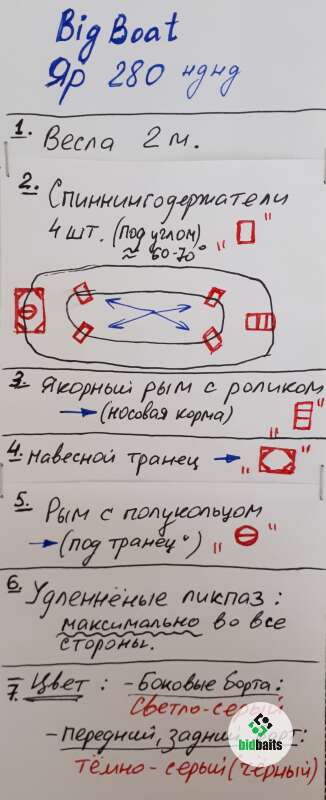 Big Boat
Яр 280 нднд
1. Весла 2 м.
2. Спиннингодержатели
4 шт. (под углом) " "
≈ 60-70°
3. Якорный рым с роликом
→ (носовая корма) " "
4. Навесной транец → " "
5. Рым с полукольцом
→ (под транец") " "
6. Удленнёные ликпаз:
максимально во все
стороны.
7. Цвет: - Боковые борта:
Светло-серый
- Передний, задний борт:
тёмно-серый (чёрный)
bidbaits